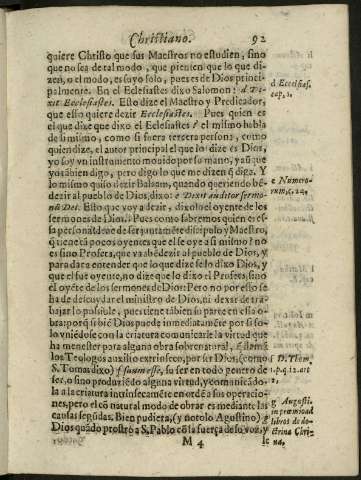 Christiano. 92
quiere Christo que sus Maestros no estudien, sino
que no sea de tal modo, que piensen que lo que di-
zen, o el modo, es suyo solo, pues es de Dios princi-
palmente. En el Eclesiastes dixo Salomon: d Di-
xit Ecclesiastes. Esto dize el Maestro y Predicador,
que esso quiere dezir Ecclesiastes. Pues quien es
el que dize que dixo el Eclesiastes? el mismo habla
de si mismo, como si fuera tercera persona, como
quien dize, el autor principal el que lo dize es Dios,
yo soy vn instrumento mouido por su mano, y aũ que
yo tãbien digo, pero digo lo que me dizen q̃ diga. Y
lo mismo quiso dezir Balaam, quando queriendo bẽ-
dezir al pueblo de Dios, dixo: e Dixit auditor sermo-
nũ Dei. Esto que voy a dezir, dixolo el oyente de los
sermones de Dios. Pues como sabremos quien es es-
sa persona
q̃ tiene tã pocos oyentes que el se oye a si mismo? no
es sino Profeta, que va a bẽdezir al pueblo de Dios, y
para dar a entender que lo que dize se lo dixo Dios, y
que el fue oyente, no dize que lo dixo el Profeta, sino
el oyẽte de los sermones de Dios. Pero no por esto se
ha de descuydar el ministro de Dios, ni dexar de tra-
bajar lo possible, pues tiene tãbien su parte en essa o-
bra: porq̃ si biẽ Dios puede inmediatamẽte por si so-
lo vniẽdose con la criatura comunicarle la virtud que
ha menester para alguna obra sobrenatural, q̃ llamã
los Teologos auxilio extrinseco, por ser Dios, (como
S. Tomas dixo) f suum esse, su ser en todo genero de
ser, o sino produziẽdo alguna virtud, y comunicãdo-
la a la criatura intrinsecamẽte en ordẽ a sus operacio-
nes, pero el cõ natural modo de obrar es mediante las
causas segũdas. Bien pudiera, (y notolo Agustino) g
Dios quãdo prostrò a S. Pablo cõ la fuerça de su voz, y
M 4 le
d Ecclesias.
cap. 1.
e Numero-
rum, c. 24.
f D. Thom.
1. p. q. 12. art
2.
g Augusti.
in proœmio ad
libros de do-
ctrina Chri-
stiana,